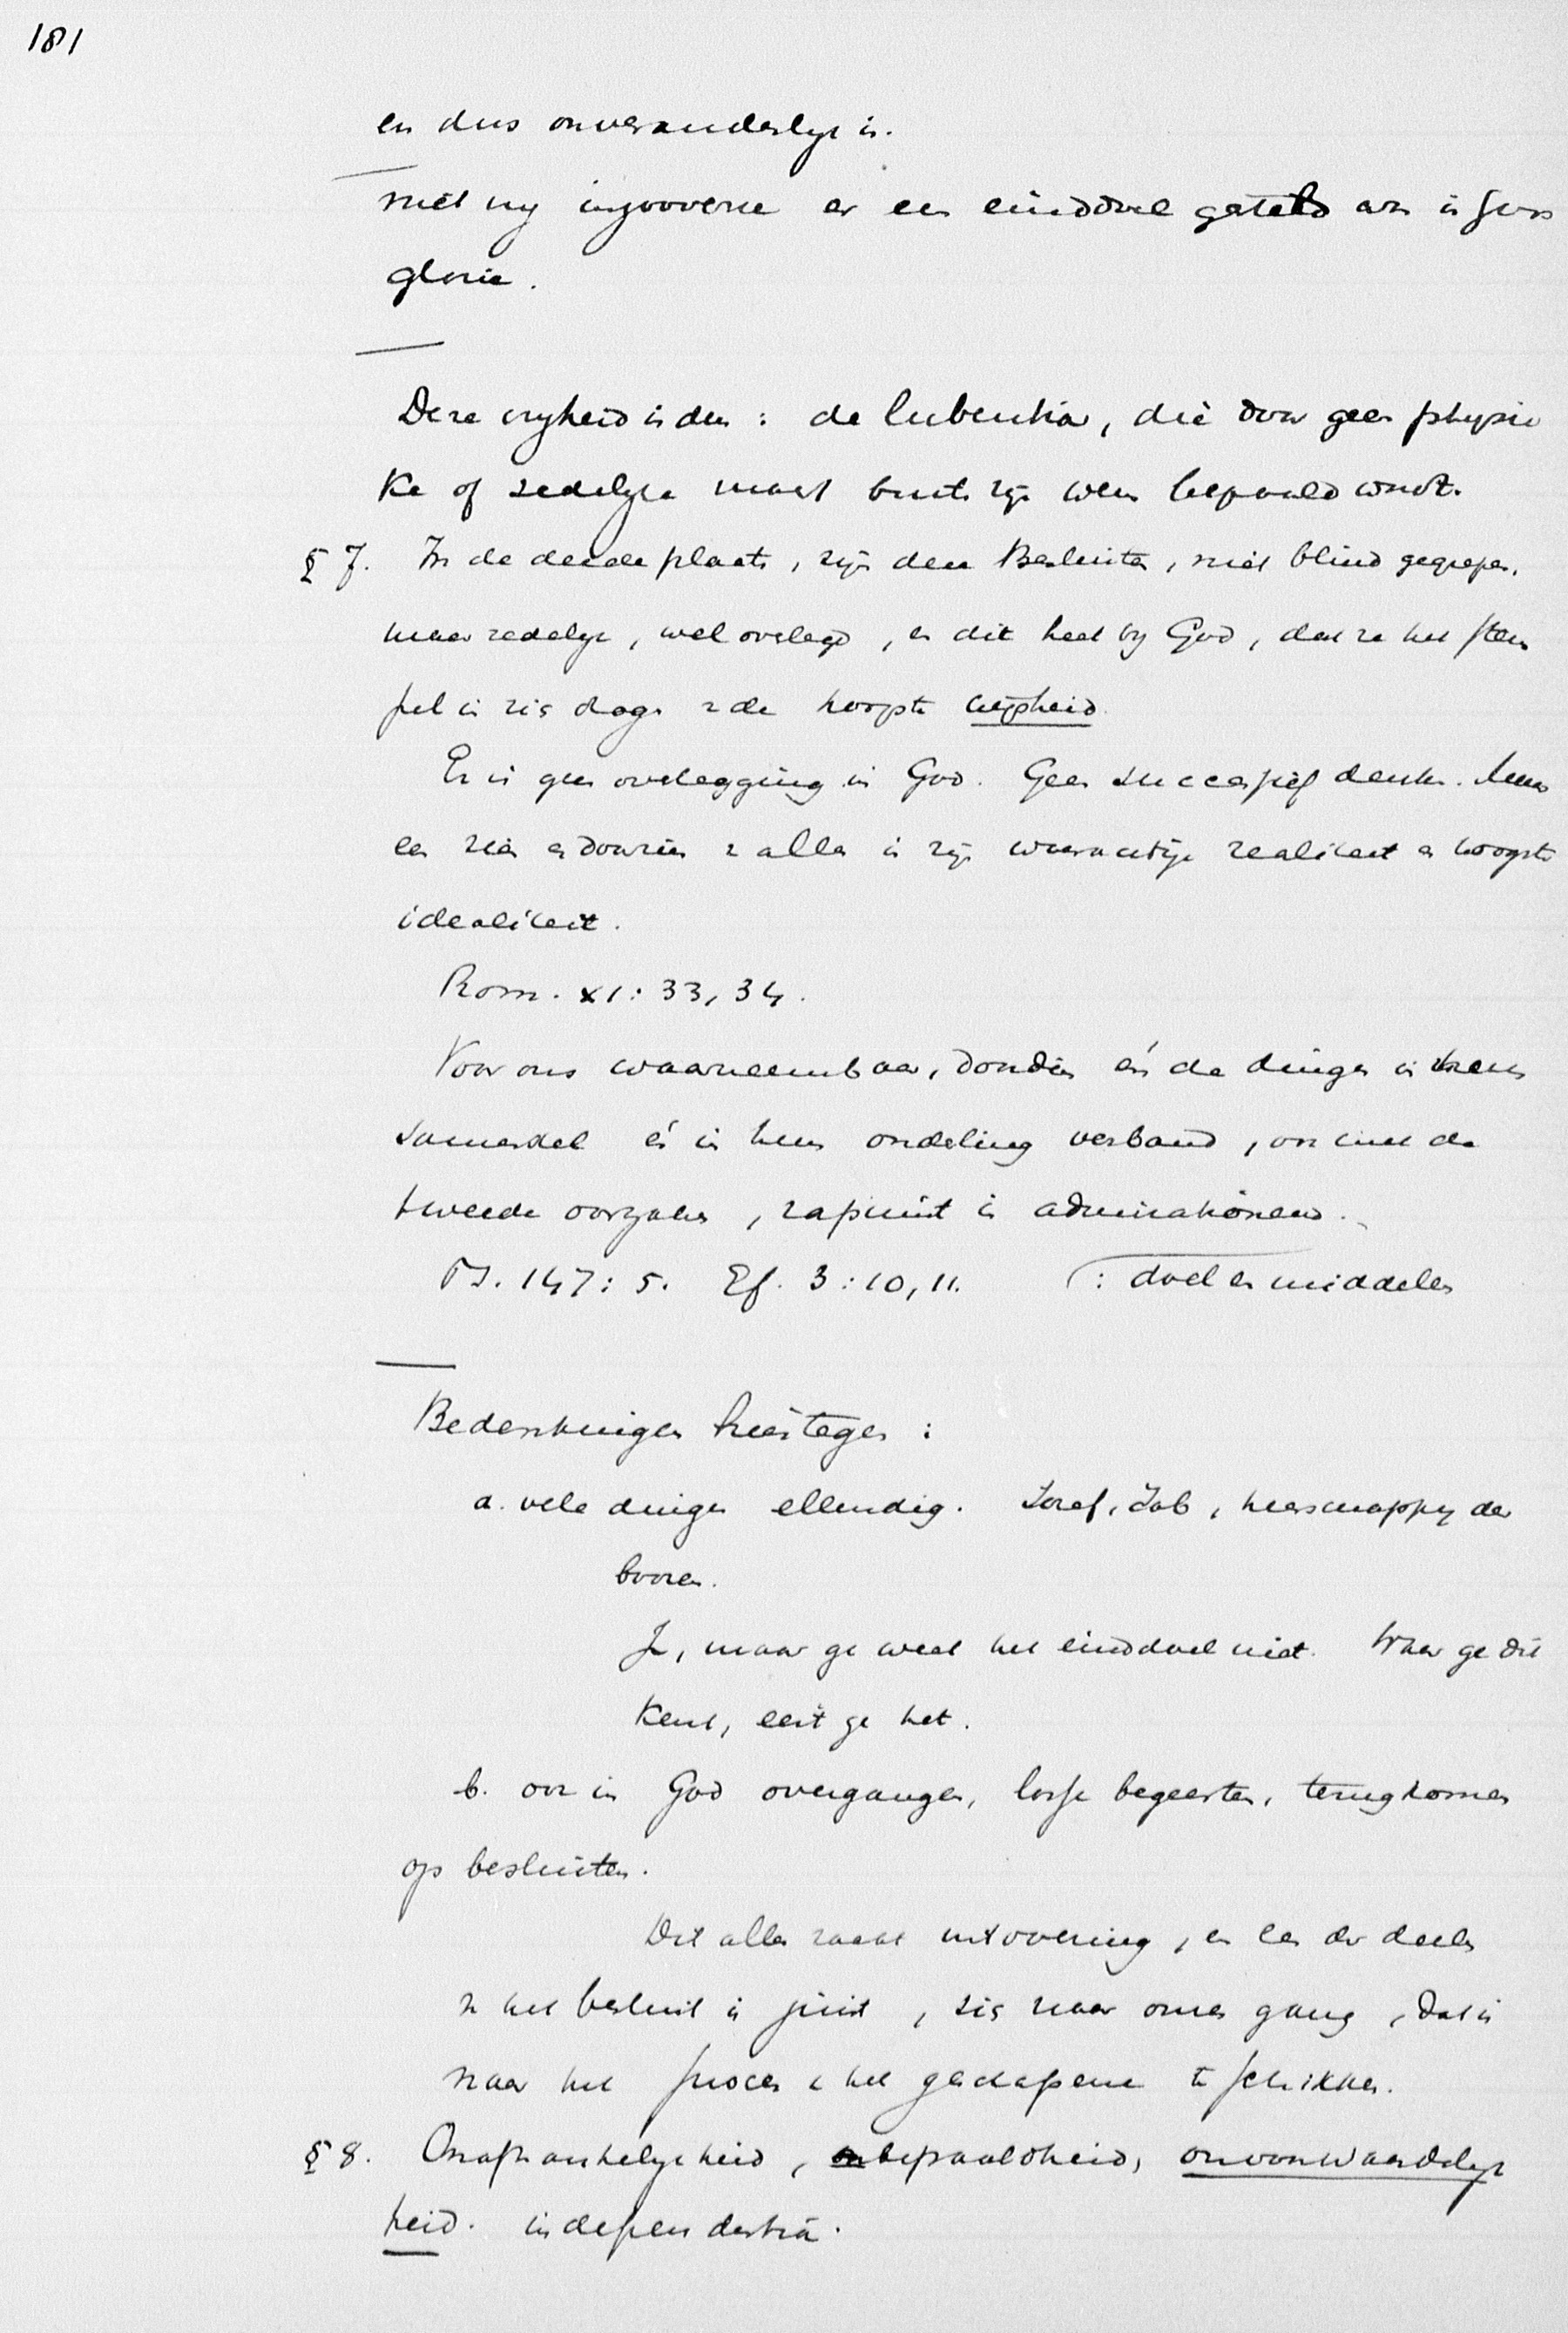 181
en dus onveranderlyk is.
niet wy ingevoerde er een einddoel gesteld aan is Gods
glorie.
Deze vryheid is dus: de lubentia, die door geen physie
ke of zedelyke macht buiten zyn wezen bepaald wordt.
§ 7. In de derde plaats, zyn deze Besluiten, niet blind gegrepen,
maar redelyk, wel overlegd, en dit heet by God, dat ze het stem
pel in zich dragen v de hoogste wysheid.
Er is geen overlegging in God. Geen successief denken. Maar
een zien en doorzien v alles in zyn waarachtige realiteit en hoogste
idealiteit.
Rom. XI: 33, 34.
Voor ons waarneembaar, doordien én de dingen in hun
samenstel én in hun onderling verband, ook met de
tweede oorzaken, rapiunt in admirationem.
Ps. 147: 5. Ef. 3: 10, 11. (: doel en middelen
Bedenkingen hiertegen:
a. vele dingen ellendig. Jozef, Job, heerschappy der
boozen.
Ja, maar ge weet het einddoel niet. Waar ge dit
kent, eert ge het.
b. ook in God overgangen, losse begeerten, terugkomen
op besluiten.
Dit alles raakt uitvoering, en een der deelen
v het besluit is juist, zich naar onzen gang, dat is
naar het proces v het geschapene te schikken.
§ 8. Onafhankelykheid, onbepaaldheid, onvoorwaardelyk
heid. independentia.